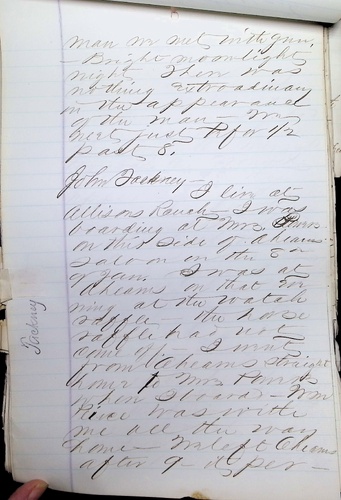 man we met with gun.
- Bright moonlight
night - There was
nothing extraodinary
in the appearance
of the man - We
next just P for 1/2
past 8.
John Tackney - I live at
Allisons Ranch - I was
boarding at Mrs.
on this side of Aheams
saloon on the 5th
of Jan. I was at
Aheams on that eve
ning at the watch
raffle - the horse
raffle had not
come off. I went
from Aheams straight
home to Mrs
where I board - Wm
was with
me all the way
home - We left Aheams
after 9 - It
Tackney